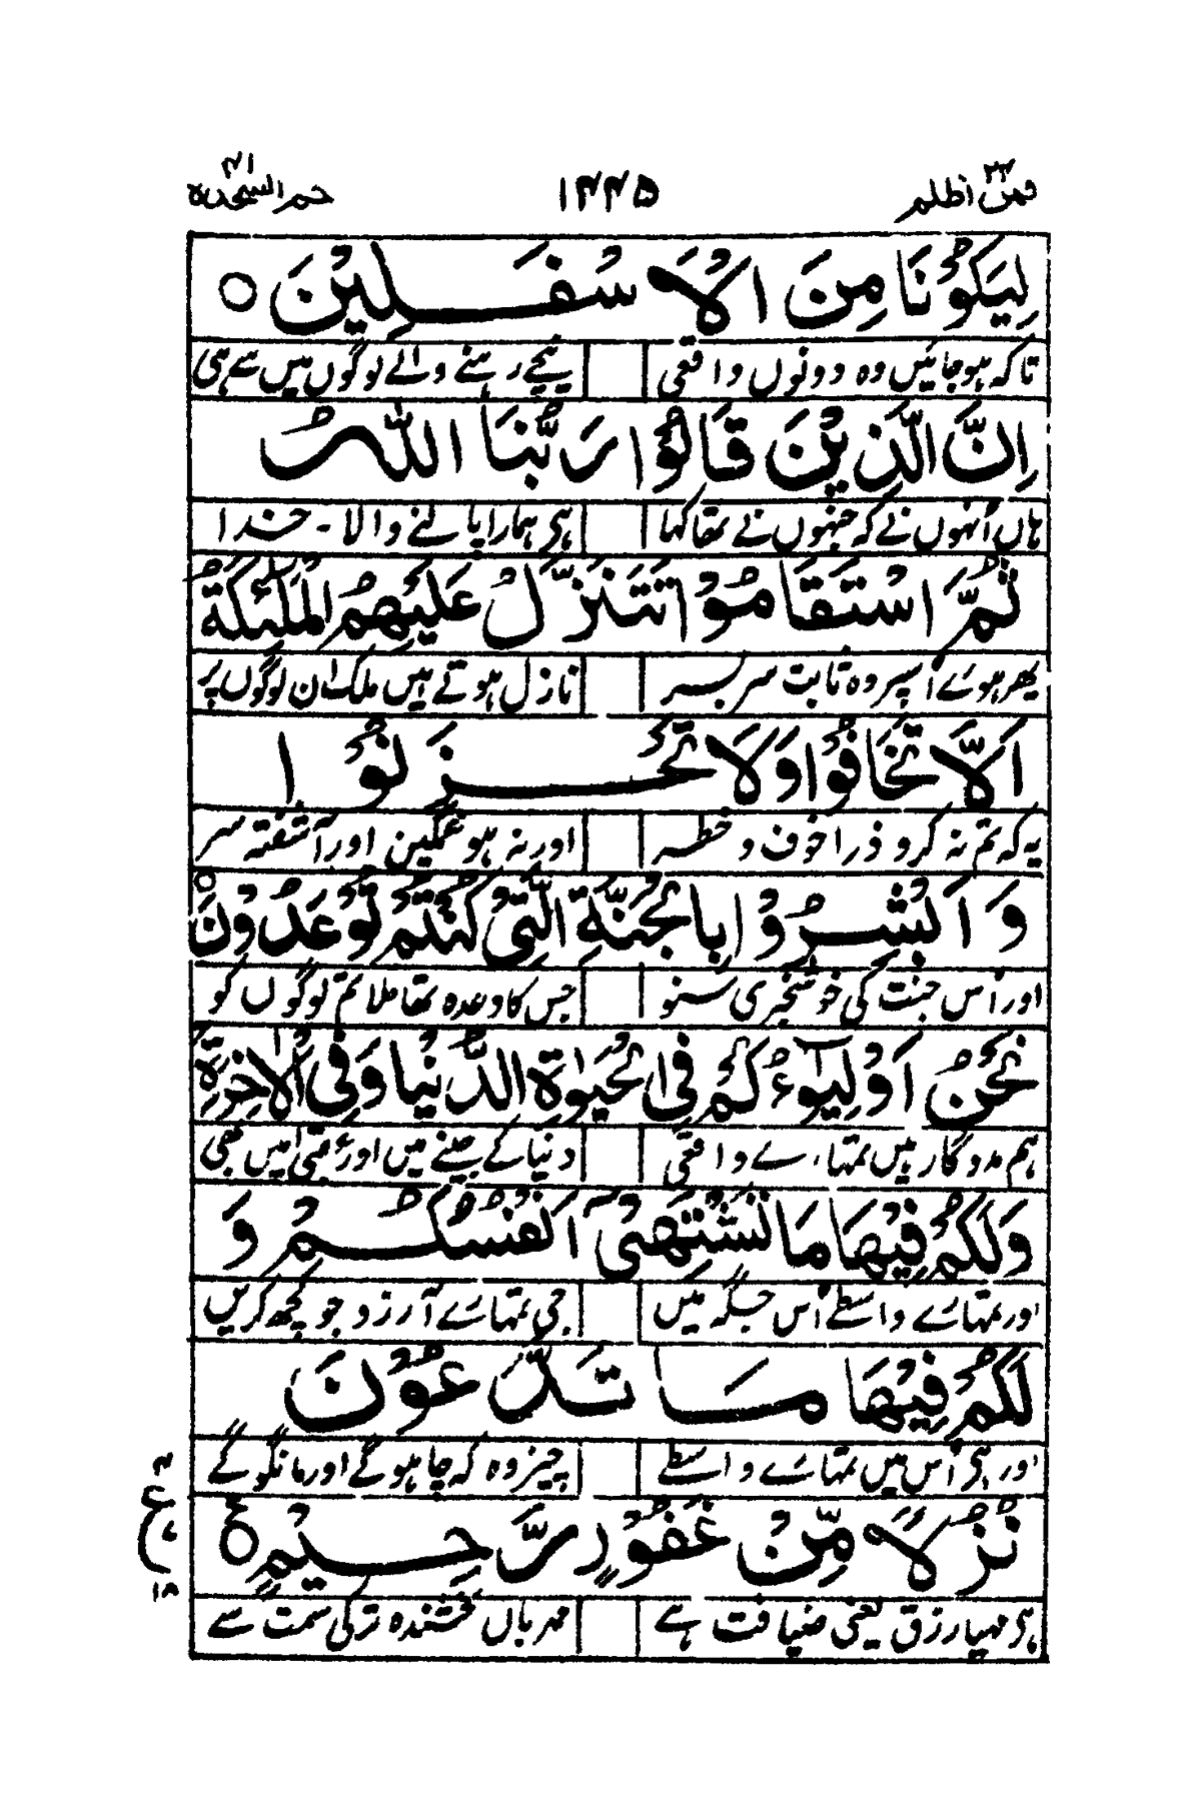 فمن اظلم ۲۴ ۱۴۴۵ حم السجدة ۴۱
لِيَكُوْنَا مِنَ الْاَسْفَلِيْنَ ○
تاکہ ہو جائیں وہ دونوں واقعی نیچے رہنے والے لوگوں میں سے ہی
اِنَّ الَّذِيْنَ قَالُوْا رَبُّنَا اللّٰهُ
ہاں اُنہوں نے کہ جنہوں نے تھا کہا ہی ہمارا پالنے والا - خدا
ثُمَّ اسْتَقَامُوْا تَتَنَزَّلُ عَلَيْهِمُ الْمَلٰٓئِكَةُ
پھر ہوے اُسپر وہ ثابت سر بسر نازل ہوتے ہیں ملک ان لوگوں پر
اَلَّا تَخَافُوْا وَلَا تَحْزَنُوْا
یہ کہ تم نہ کرو ذرا خوف و خطر اور نہ ہو غمگین اور آشفتہ سر
وَ اَبْشِرُوْا بِالْجَنَّةِ الَّتِيْ كُنْتُمْ تُوْعَدُوْنَ ○
اور اُس جنت کی خوشخبری سنو جس کا وعدہ تھا ملا تم لوگوں کو
نَحْنُ اَوْلِيٰٓؤُكُمْ فِي الْحَيٰوةِ الدُّنْيَا وَفِي الْاٰخِرَةِ
ہم مددگار ہیں تمہارے واقعی دنیا کے جینے میں اور عقبیٰ میں بھی
وَلَكُمْ فِيْهَا مَا تَشْتَهِيْٓ اَنْفُسُكُمْ وَ
اور تمہارے واسطے اُس جگہ میں جی تمہارے آرزو جو کچھ کریں
لَكُمْ فِيْهَا مَا تَدَّعُوْنَ
اور ہی اُس میں تمہارے واسطے چیز وہ کہ چاہو گے اور مانگو گے
نُزُلًا مِّنْ غَفُوْرٍ رَّحِيْمٍ ○ ع
ہی مہیا رزق یعنی ضیافت ہے مہرباں بخشندہ تر کی سمت سے
۴ ع ۱۸